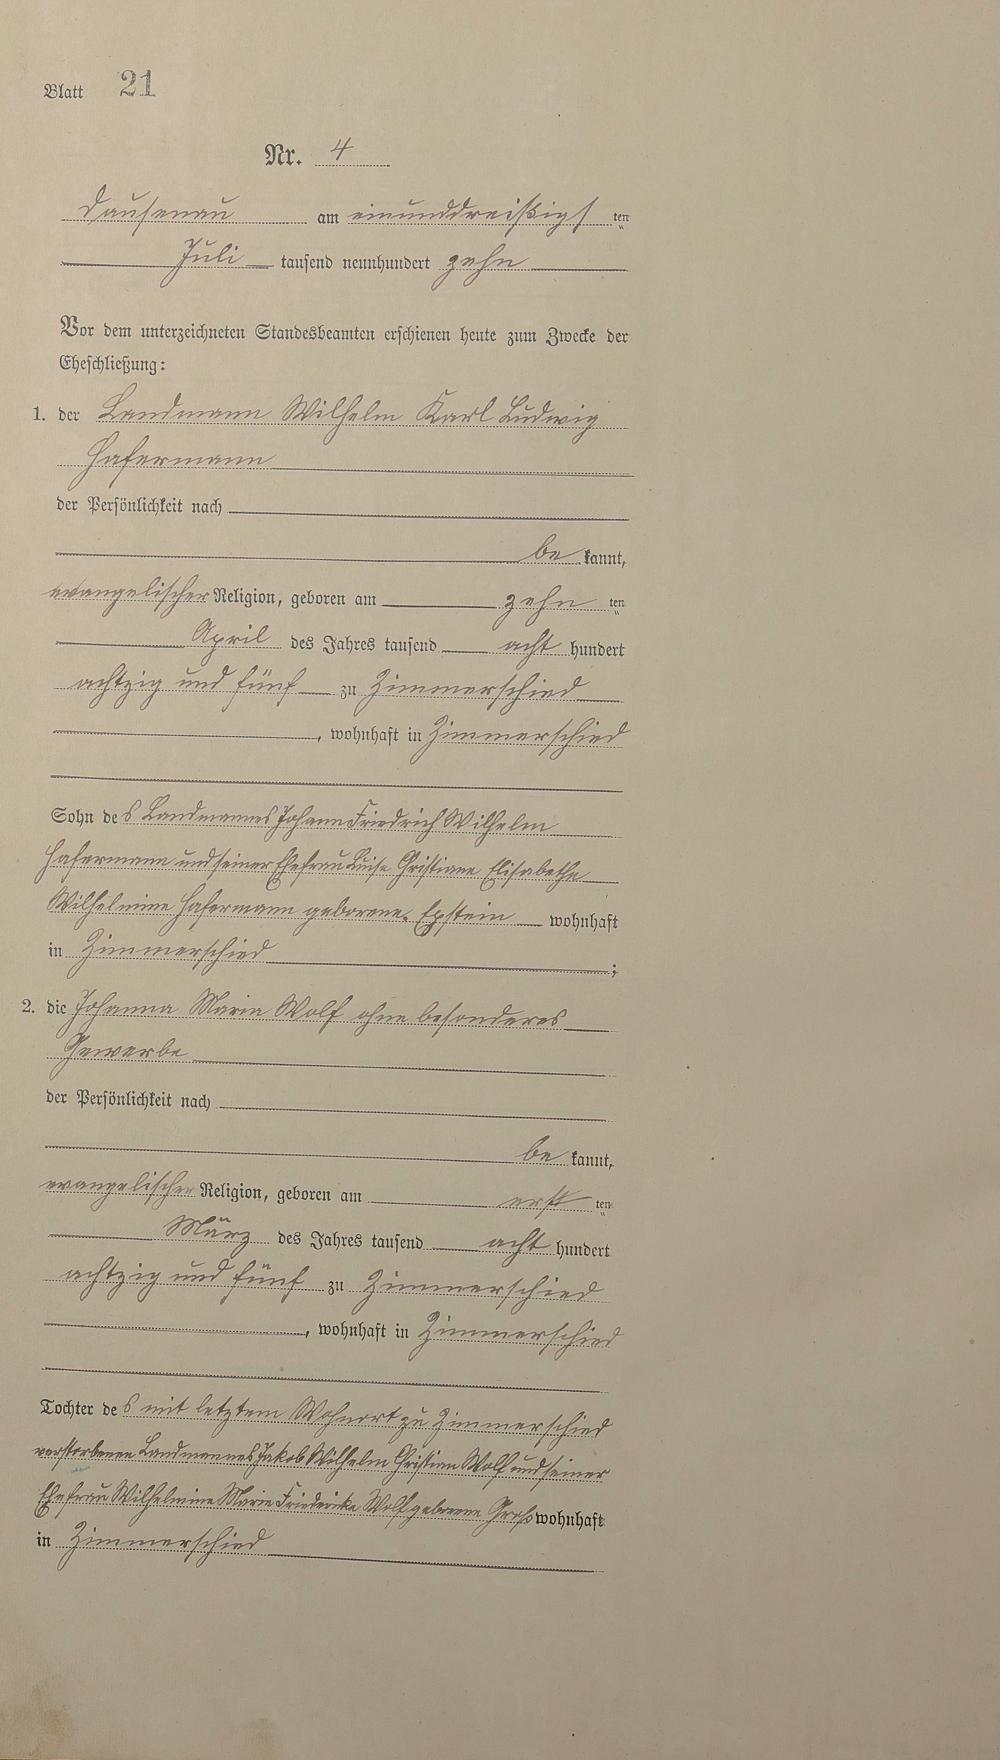 Blatt 21
Nr. 4
Dausenau am einunddreißigsten
Juli tausend neunhundert zehn
Vor dem unterzeichneten Standesbeamten erschienen heute zum Zwecke der
Eheschließung:
1. der Landmann Wilhelm Karl Ludwig
Hafermann
der Persönlichkeit nach
be kannt,
evangelischer Religion, geboren am zehn ten
April des Jahres tausend acht hundert
achtzig und fünf zu Zimmerschied
, wohnhaft in Zimmerschied
Sohn des Landmannes Johann Friedrich Wilhelm
Hafermann und seiner Ehefrau Luise Christiane Elisabethe
Wilhelmine Hafermann geborene Epstein wohnhaft
in Zimmerschied ;
2. die Johanna Maria Wolf ohne besonderes
Gewerbe
der Persönlichkeit nach
be kannt,
evangelischer Religion, geboren am erst ten
März des Jahres tausend acht hundert
achtzig und fünf zu Zimmerschied
, wohnhaft in Zimmerschied
Tochter des mit letztem Wohnort zu Zimmerschied
verstorbenen Landmannes Jakob Wilhelm Christian Wolf und seiner
Ehefrau Wilhelmine Marie Friederike Wolf geborene Groß wohnhaft
in Zimmerschied